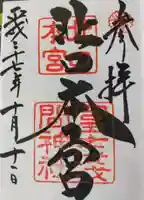 参拝
北口本宮
北口
本宮
冨士浅
間神社
平成二十七年十月十一日